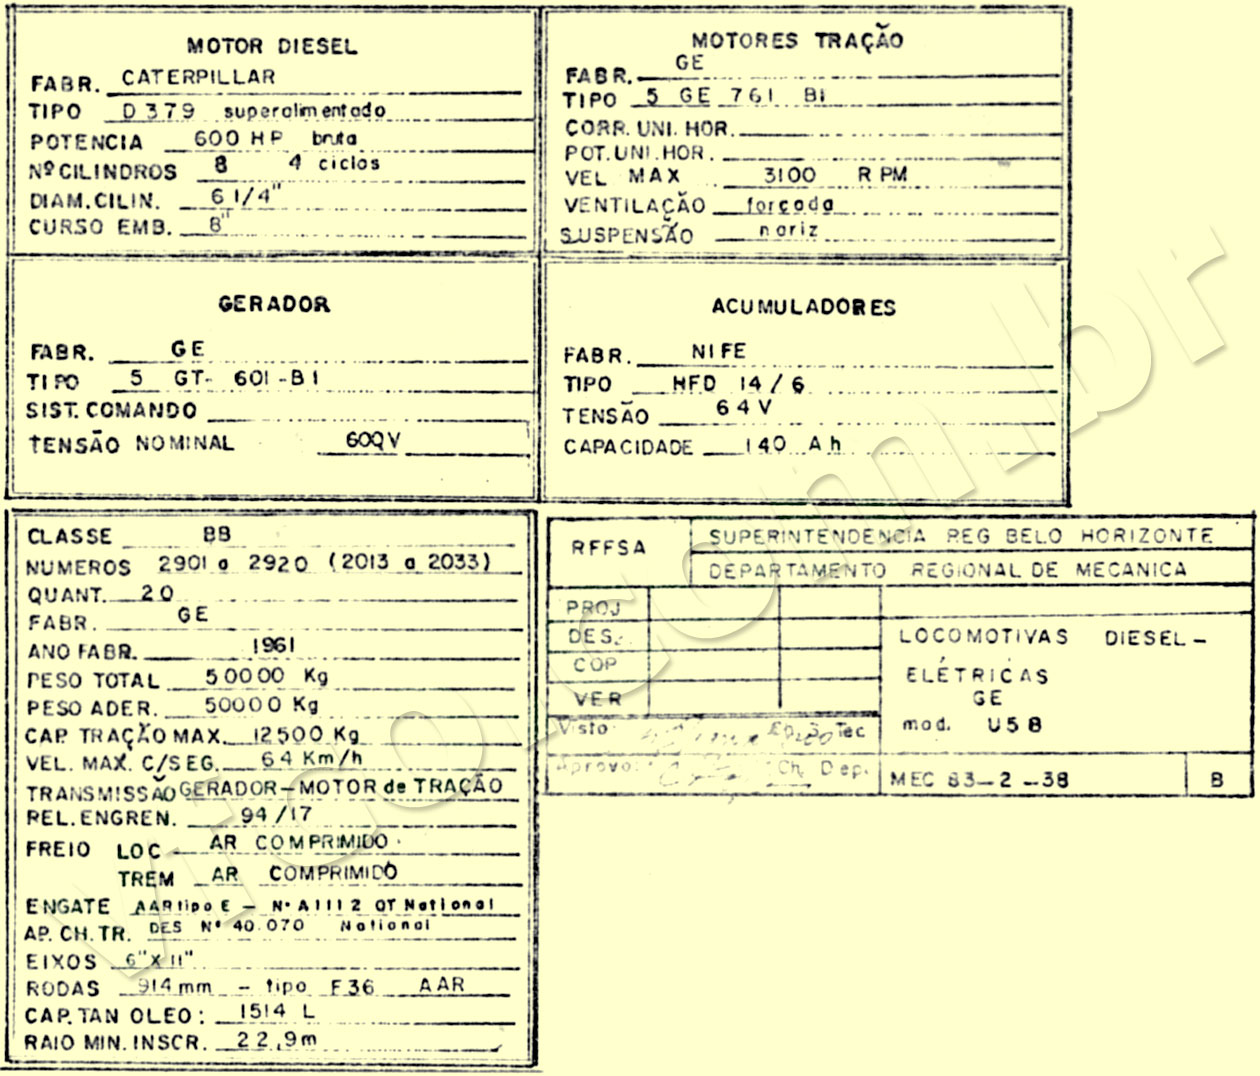 MOTOR DIESEL
FABR. CATERPILLAR
TIPO D 379 superalimentado
POTENCIA 600 HP bruta
Nº CILINDROS 8 4 ciclos
DIAM. CILIN. 6 1/4"
CURSO EMB. 8"
MOTORES TRAÇÃO
FABR. GE
TIPO 5 GE 761 B1
CORR. UNI. HOR.
POT. UNI. HOR.
VEL MAX 3100 RPM
VENTILAÇÃO forçada
SUSPENSÃO nariz
GERADOR
FABR. GE
TIPO 5 GT- 601-B1
SIST. COMANDO
TENSÃO NOMINAL 600V
ACUMULADORES
FABR. NIFE
TIPO HFD 14/6
TENSÃO 64V
CAPACIDADE 140 Ah
CLASSE BB
NUMEROS 2901 a 2920 (2013 a 2033)
QUANT. 20
FABR. GE
ANO FABR. 1961
PESO TOTAL 50000 Kg
PESO ADER. 50000 Kg
CAP. TRAÇÃO MAX. 12500 Kg
VEL. MAX. C/SEG. 64 Km/h
TRANSMISSÃO GERADOR-MOTOR de TRAÇÃO
REL. ENGREN. 94/17
FREIO LOC AR COMPRIMIDO
TREM AR COMPRIMIDO
ENGATE AAR tipo E - Nº A1112 QT National
AP. CH. TR. DES Nº 40.070 National
EIXOS 6" X 11"
RODAS 914 mm - tipo F36 AAR
CAP. TAN OLEO: 1514 L
RAIO MIN. INSCR. 22,9m
RFFSA
SUPERINTENDENCIA REG BELO HORIZONTE
DEPARTAMENTO REGIONAL DE MECANICA
PROJ
DES.
COP
VER
Visto: Tec
Aprovo: Ch. Dep.
LOCOMOTIVAS DIESEL-
ELÉTRICAS
GE
mod. U5B
MEC 83-2-38 B
vfco.com.br